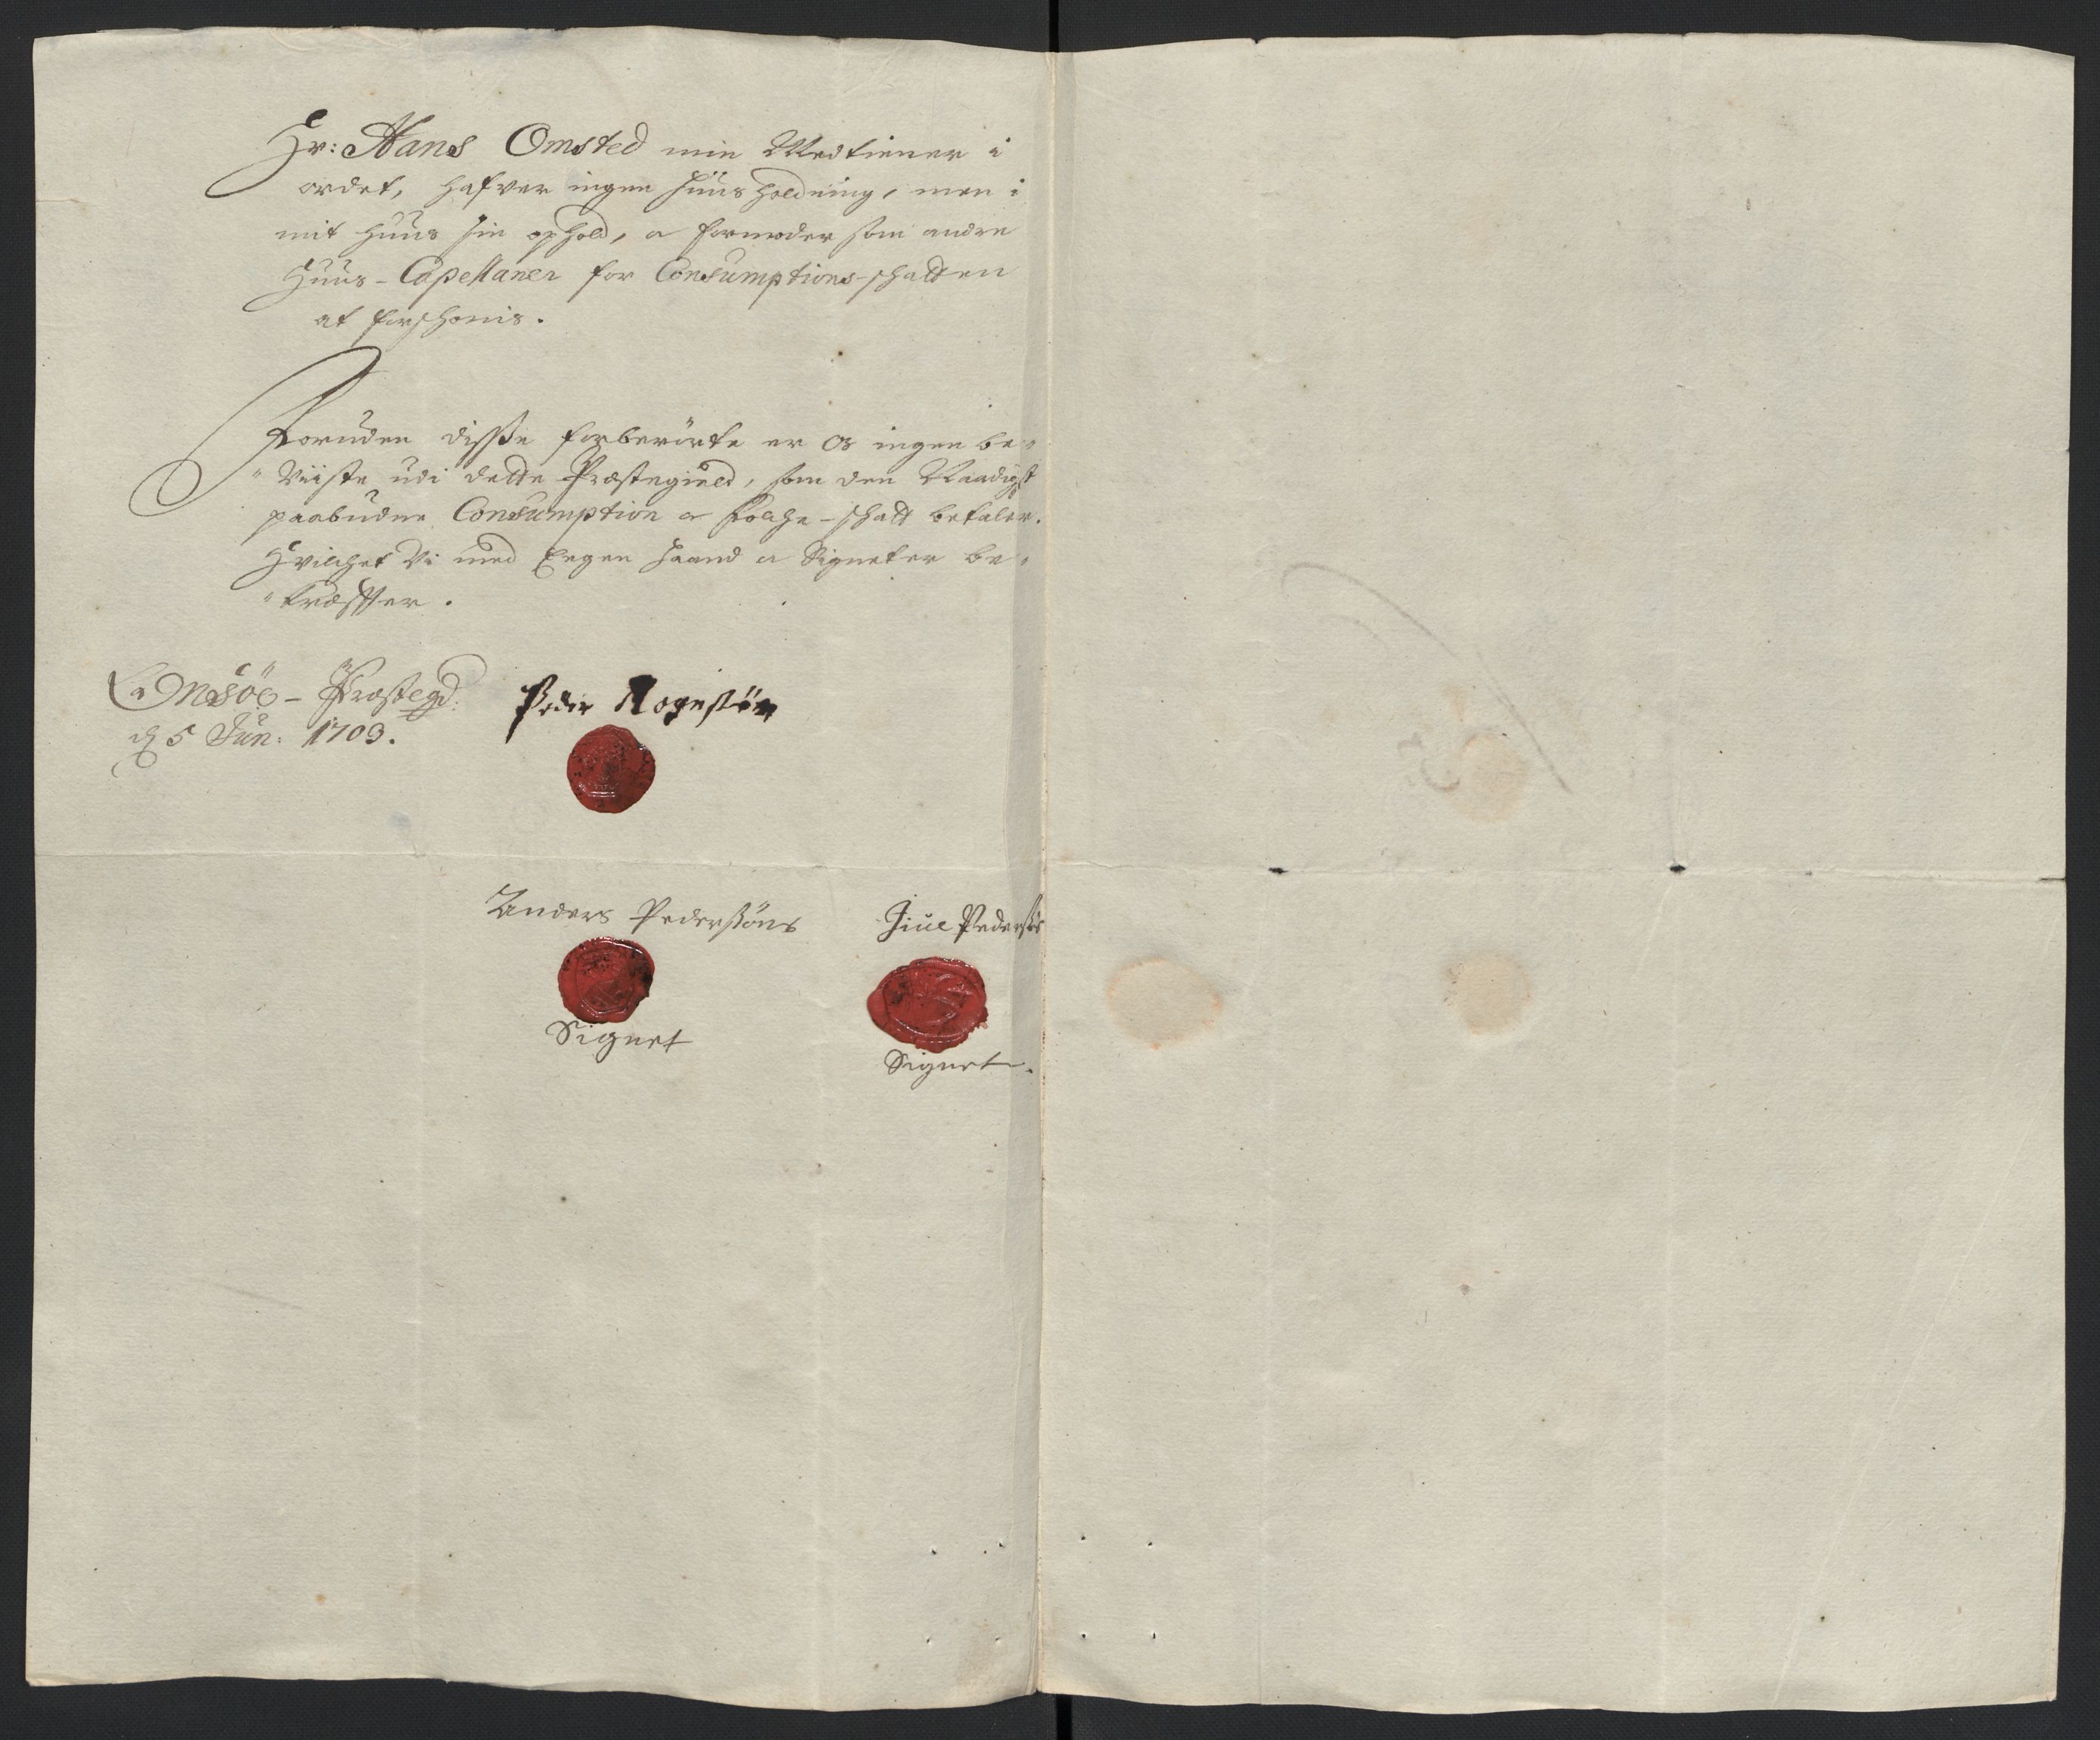 Hr: Hans Omsted min Medtiener i
ordet, hafver ingen huusholdning, men i
mit huus sin ophold, a formoder som andre
Huus-Capellaner for Consumptions-schatten
at forschonis.
Foruden disse forberörte er os ingen be-
Viiste udi dette Præstegield, som den Naadigst
paabudne Consumption a Folche-schatt betaler.
Hvilchet Vi med Eegen haand a Signeter be-
kræffter.
Onsöe-Præstegd:
d 5 Jun: 1703.
Peder
Anders Pedersöns
Juel Pedersös
Signet
Signet.